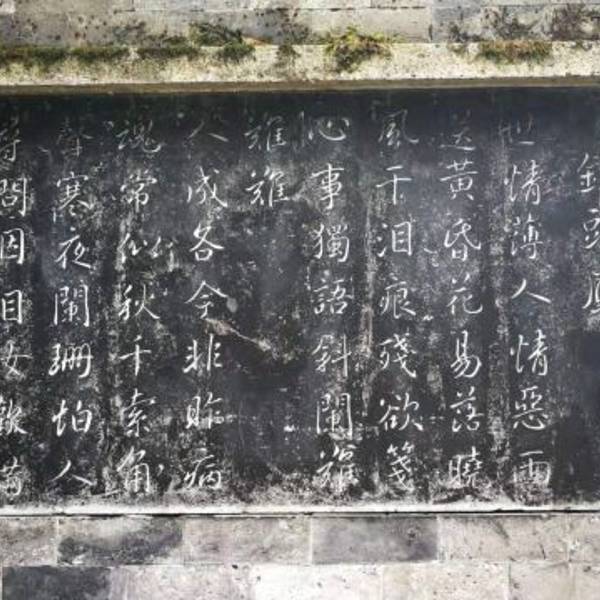 釵頭鳳
世情薄人情惡雨
送黃昏花易落曉
風干泪痕殘欲箋
心事獨語斜闌難
難難
人成各今非昨病
魂常似秋千索角
聲寒夜闌珊怕人
尋問咽泪妝歡瞞